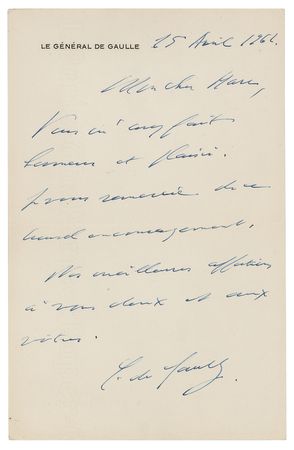 LE GÉNÉRAL DE GAULLE
15 Avril 1961.
Mon cher Marc,
Vous m'avez fait
honneur et plaisir.
Je vous remercie de ce
encouragement.
Nos meilleures affections
à vous deux et aux
vôtres.
C. de Gaulle.